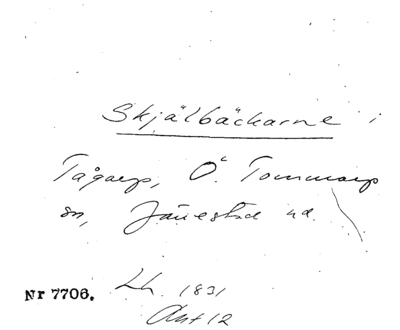 Skjälbäckarne i
Tågarp, Ö. Tommarp
sn, Järrestad hd.
Nr 7706. Lh. 1831
Akt 12